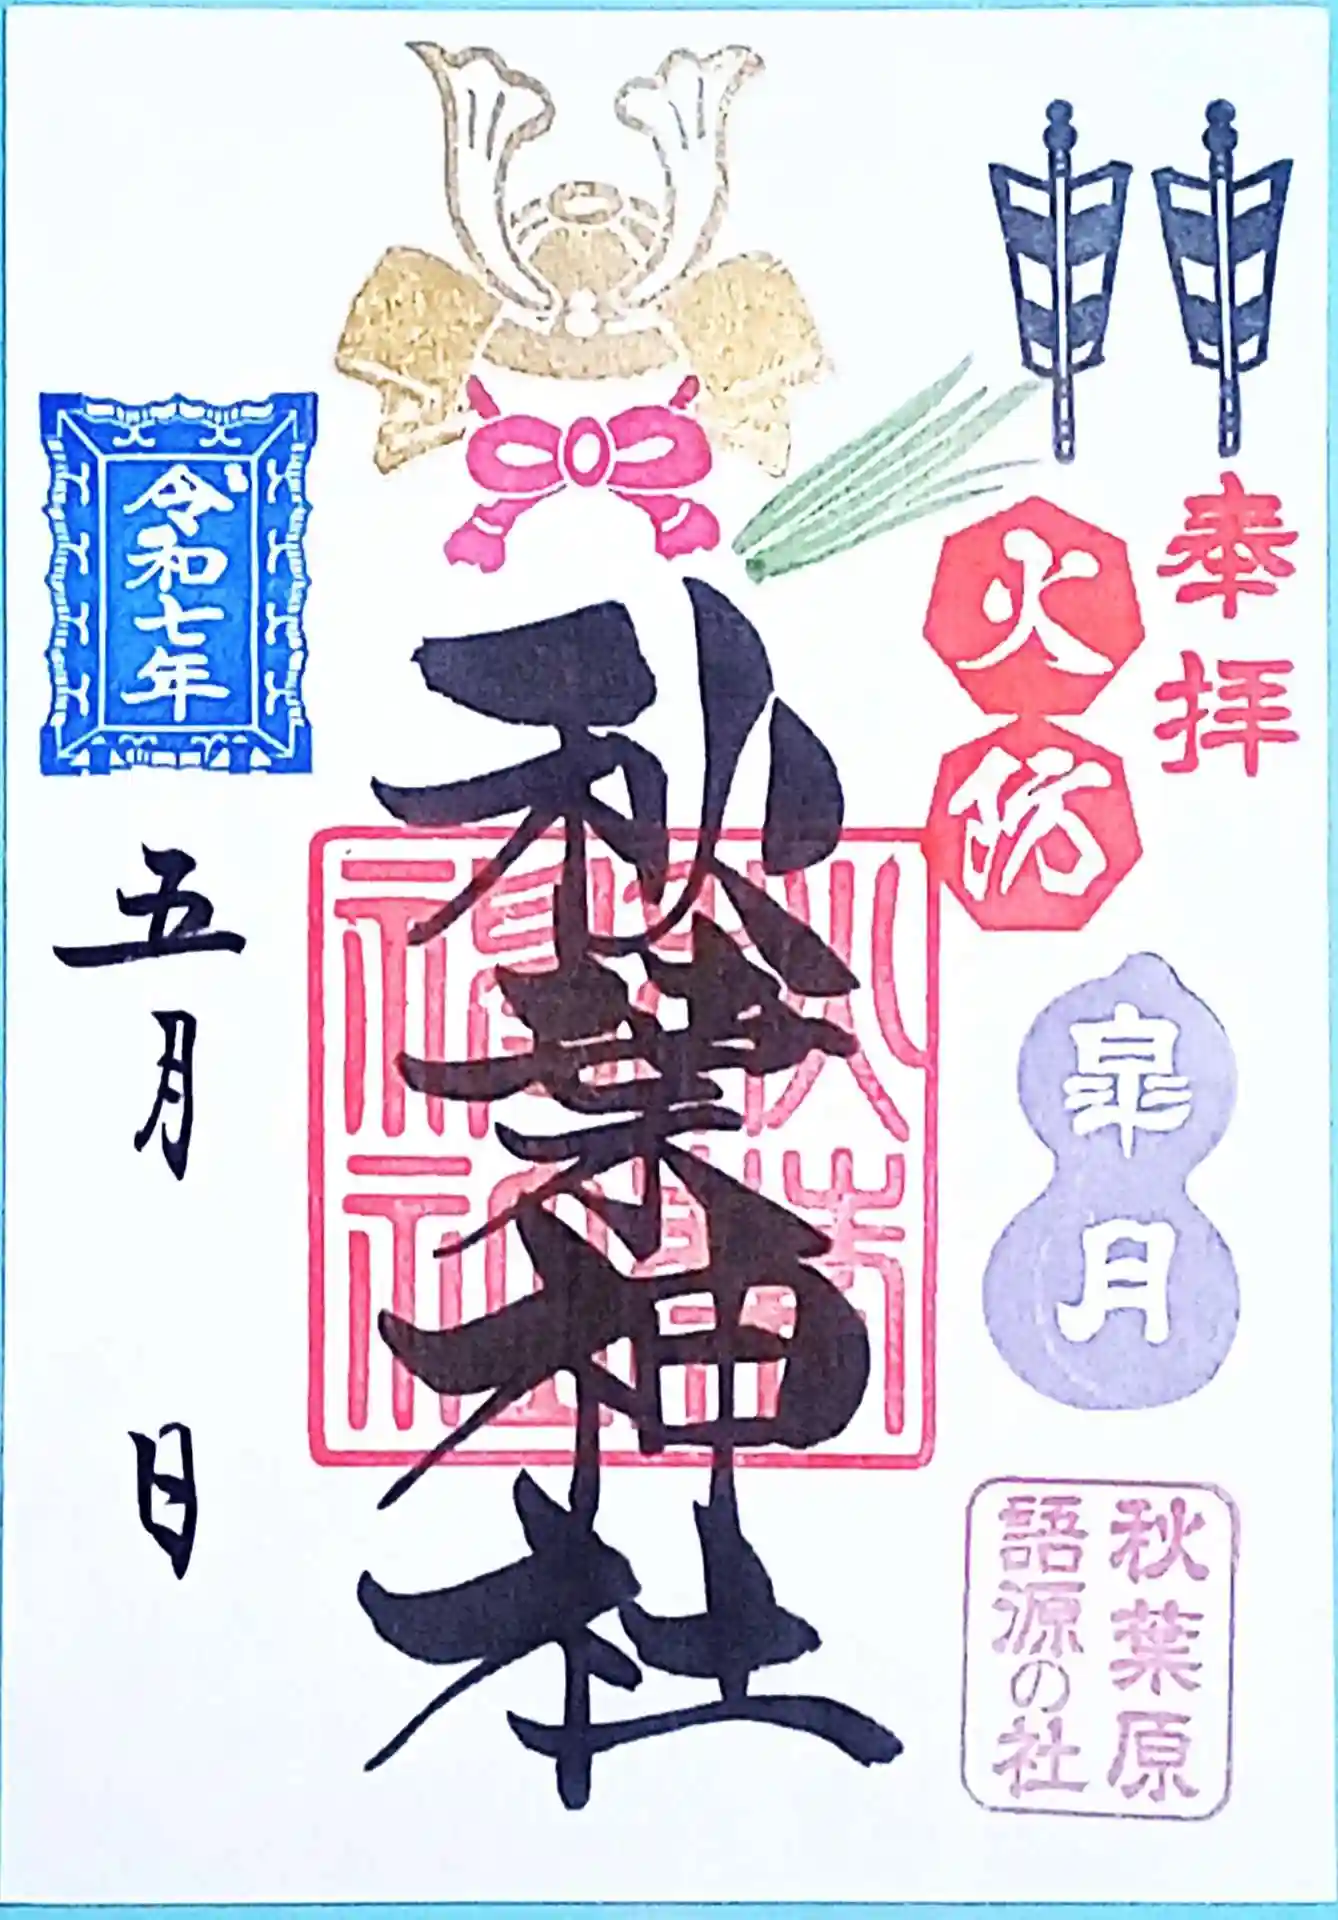 奉拝
火防
皐月
秋葉原
語源の社
秋葉神社
令和七年
五月
日